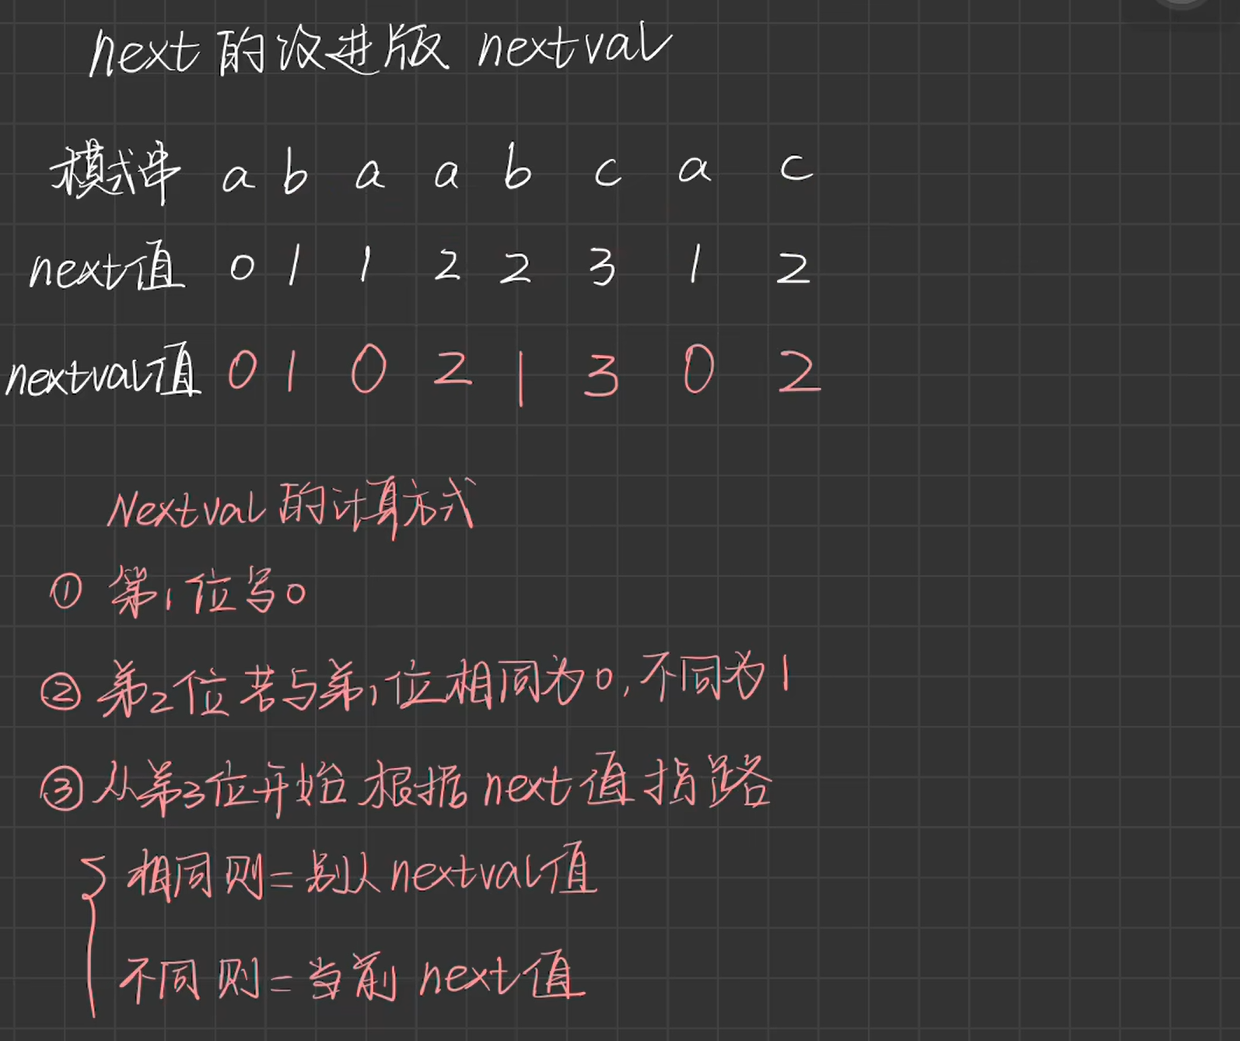 next的改进版 nextval
模式串 a b a a b c a c
next值 0 1 1 2 2 3 1 2
nextval值 0 1 0 2 1 3 0 2
Nextval的计算方式
① 第1位写0
② 第2位若与第1位相同为0,不同为1
③ 从第3位开始 根据next值指路
相同则=别人nextval值
不同则=当前next值